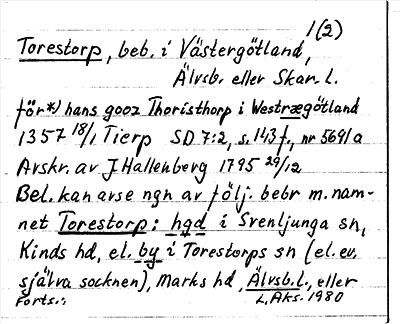 1(2)
Torestorp, beb. i Västergötland,
Älvsb. eller Skar. l.
för*) hans gooz Thoristhorp i Westrægötland
1357 18/1 Tierp SD 7:2, s. 143 f., nr 5691a
Avskr. av J Hallenberg 1795 29/12
Bel. kan avse ngn av följ. bebr m. nam-
net Torestorp: hgd i Svenljunga sn,
Kinds hd, el. by i Torestorps sn (el. ev.
själva socknen), Marks hd, Älvsb. l., eller
Forts.: L, Aks. 1980